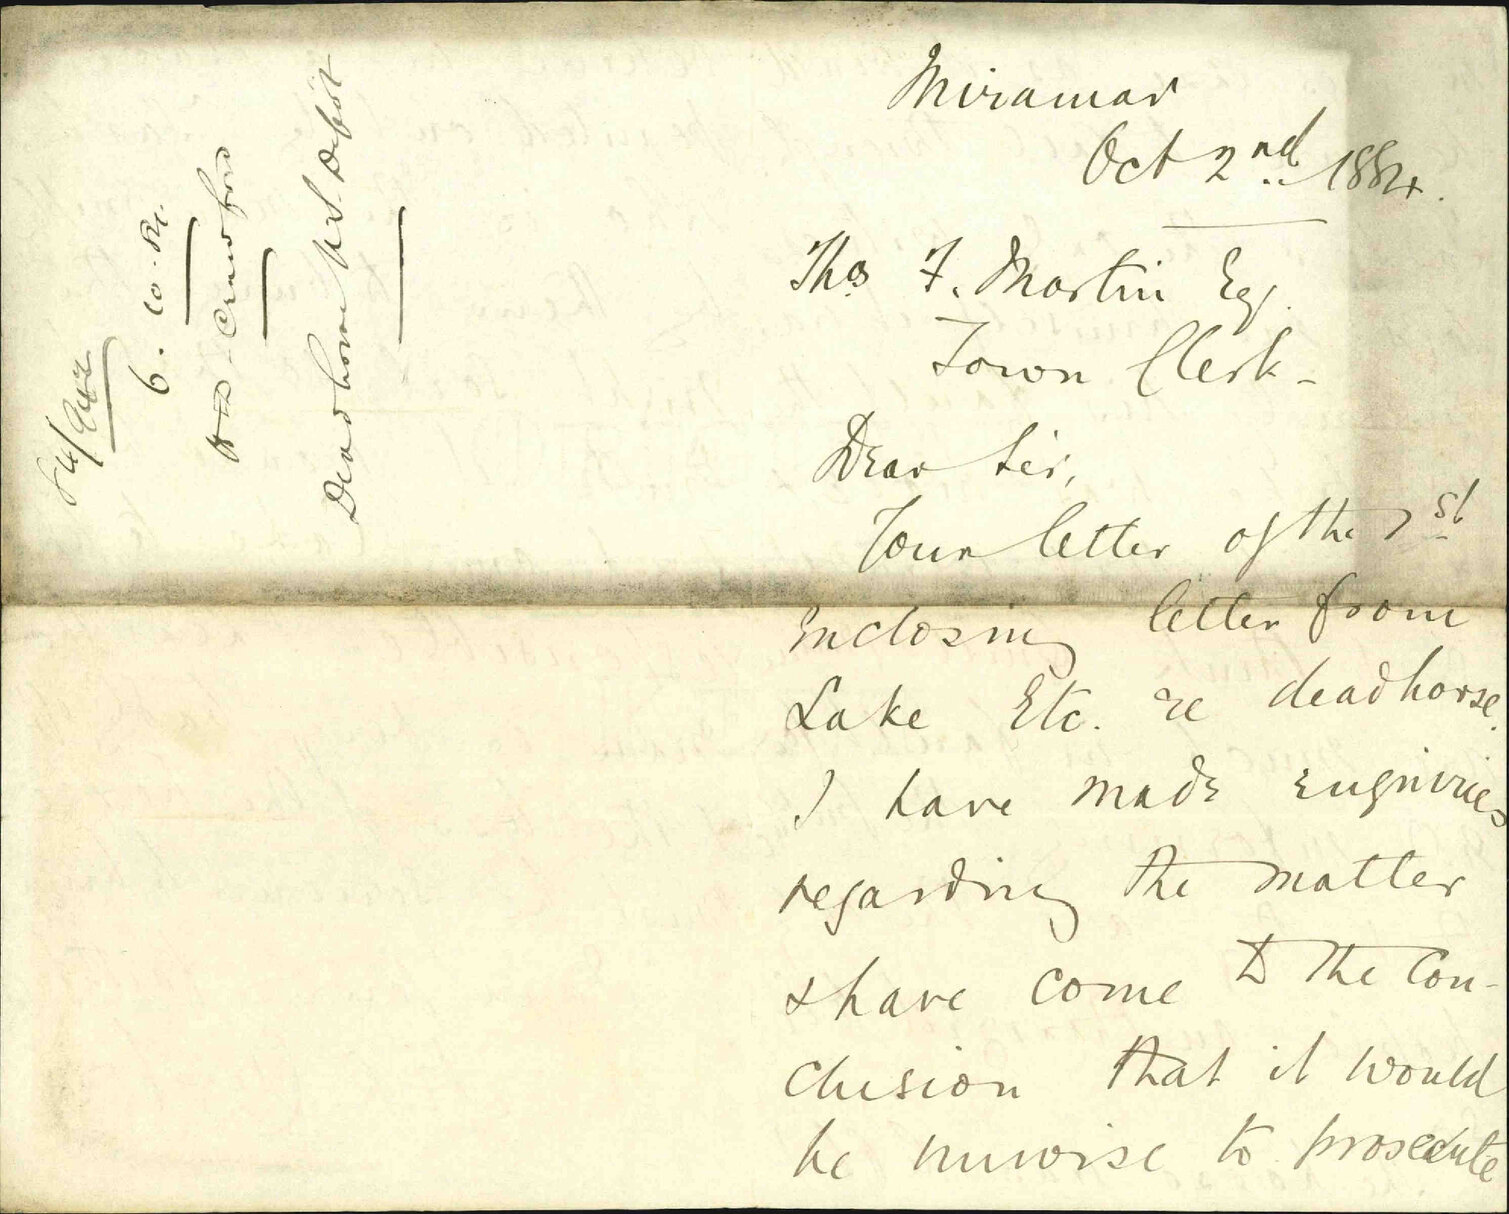 84/942
6. 10. 84.
H. D. Crawford
Deadhorse N.S. Depôt
Miramar
Oct 2nd 1884.
Thos F. Martin Esq.
Town Clerk -
Dear Sir,
Your letter of the 1st
enclosing letter from
Lake Etc. re deadhorse.
I have made enquiries
regarding the matter
& have come to the Con-
clusion that it would
be unwise to prosecute